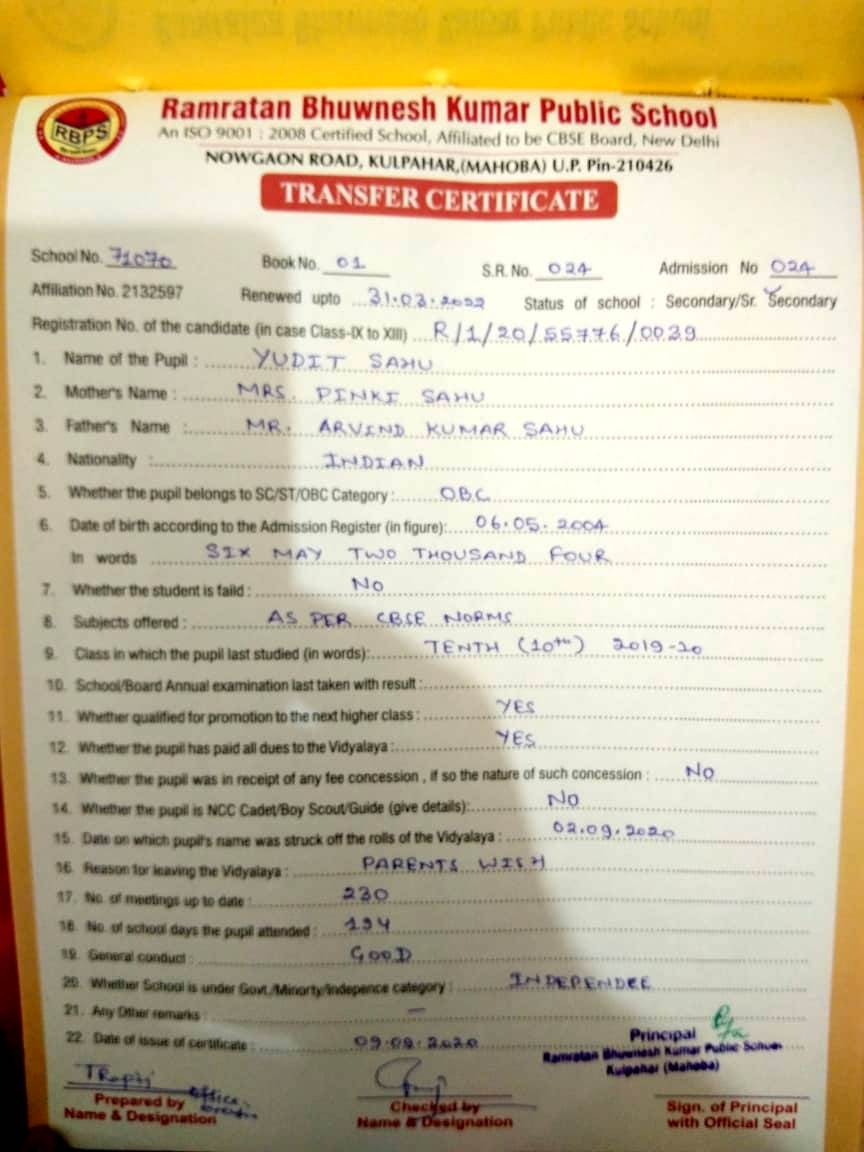 RBPS
Ramratan Bhuwnesh Kumar Public School
An ISO 9001 : 2008 Certified School, Affiliated to be CBSE Board, New Delhi
NOWGAON ROAD, KULPAHAR,(MAHOBA) U.P. Pin-210426
TRANSFER CERTIFICATE
School No. 71070 Book No. 01 S.R. No. 024 Admission No 024
Affiliation No. 2132597 Renewed upto 31.03.2022 Status of school : Secondary/Sr. Secondary
Registration No. of the candidate (in case Class-IX to XIII) R/1/20/55776/0039
1. Name of the Pupil : YUDIT SAHU
2. Mother's Name : MRS. PINKI SAHU
3. Father's Name : MR. ARVIND KUMAR SAHU
4. Nationality : INDIAN
5. Whether the pupil belongs to SC/ST/OBC Category : OBC
6. Date of birth according to the Admission Register (in figure): 06.05.2004
In words SIX MAY TWO THOUSAND FOUR
7. Whether the student is faild : NO
8. Subjects offered : AS PER CBSE NORMS
9. Class in which the pupil last studied (in words): TENTH (10th) 2019-20
10. School/Board Annual examination last taken with result :
11. Whether qualified for promotion to the next higher class : YES
12. Whether the pupil has paid all dues to the Vidyalaya : YES
13. Whether the pupil was in receipt of any fee concession , if so the nature of such concession : NO
14. Whether the pupil is NCC Cadet/Boy Scout/Guide (give details): NO
15. Date on which pupil's name was struck off the rolls of the Vidyalaya : 02.09.2020
16. Reason for leaving the Vidyalaya : PARENTS WISH
17. No. of meetings up to date : 230
18. No. of school days the pupil attended : 194
19. General conduct : GOOD
20. Whether School is under Govt./Minorty/Indepence category : INDEPENDEE
21. Any Other remarks : —
22. Date of issue of certificate : 09.09.2020
Principal
Ramratan Bhuwnesh Kumar Public School
Kulpahar (Mahoba)
Prepared by
Name & Designation
Checked by
Name & Designation
Sign. of Principal
with Official Seal